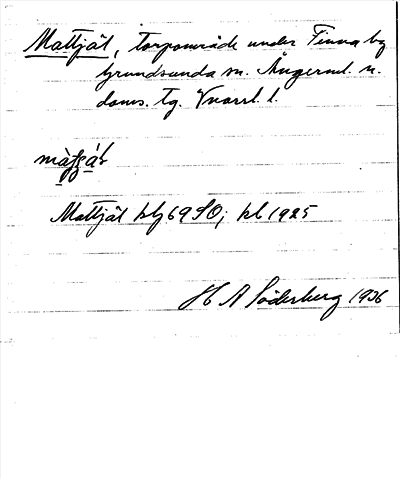 Mattjäl, torpområde under Finna by
Grundsunda sn. Ångerml. n.
doms. tg. Vnorrl. l.
Mattjäl kbl 69 SO; kbl 1925
H A Söderberg 1936